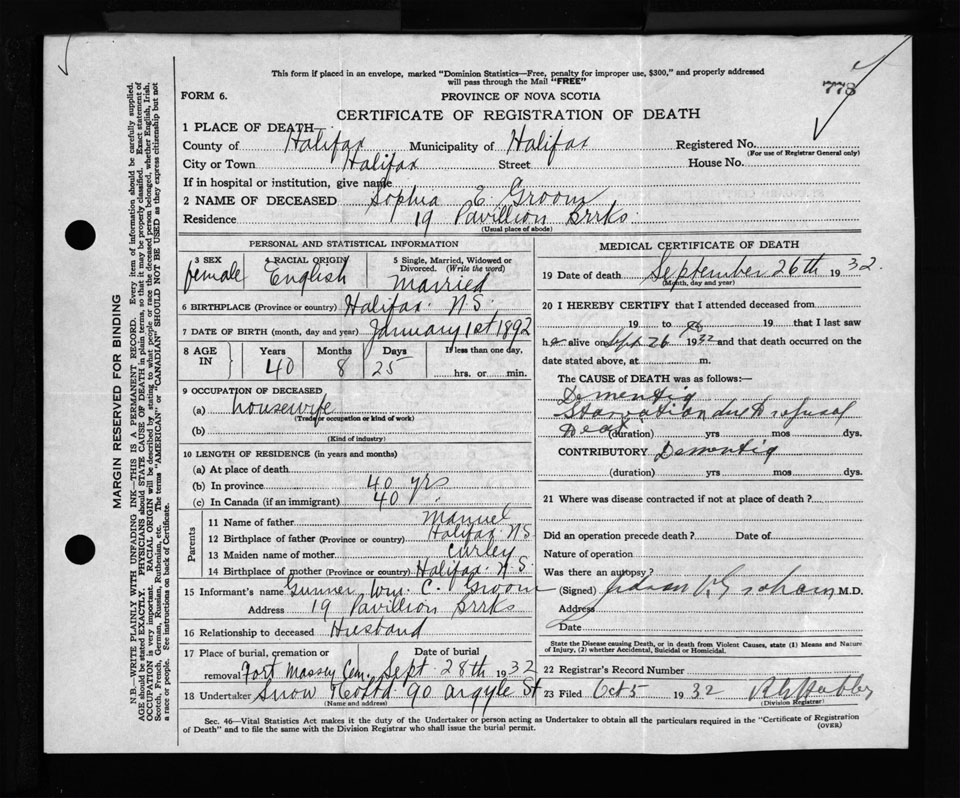 This form if placed in an envelope, marked "Dominion Statistics—Free, penalty for improper use, $300," and properly addressed
will pass through the Mail "FREE"
778
FORM 6.
PROVINCE OF NOVA SCOTIA
CERTIFICATE OF REGISTRATION OF DEATH
1 PLACE OF DEATH—
County of Halifax Municipality of Halifax Registered No.
(For use of Registrar General only)
City or Town Halifax Street House No.
If in hospital or institution, give name
2 NAME OF DECEASED Sophia E. Groom
Residence 19 Pavillion Brrks.
(Usual place of abode)
PERSONAL AND STATISTICAL INFORMATION
3 SEX 4 RACIAL ORIGIN 5 Single, Married, Widowed or Divorced. (Write the word)
female English Married
6 BIRTHPLACE (Province or country) Halifax. N.S.
7 DATE OF BIRTH (month, day and year) January 1st 1892
8 AGE IN Years Months Days If less than one day,
40 8 25 hrs. or min.
9 OCCUPATION OF DECEASED
(a) housewife
(Trade or occupation or kind of work)
(b)
(Kind of industry)
10 LENGTH OF RESIDENCE (in years and months)
(a) At place of death
(b) In province 40 yrs
(c) In Canada (if an immigrant) 40 "
Parents
11 Name of father Manuel
12 Birthplace of father (Province or country) Halifax. N.S
13 Maiden name of mother Curley
14 Birthplace of mother (Province or country) Halifax. N.S.
15 Informant's name Gunner Wm. C. Groom
Address 19 Pavillion Brrks
16 Relationship to deceased Husband
17 Place of burial, cremation or removal Date of burial
Fort Massey Cem. Sept. 28th 1932
18 Undertaker Snow & Co Ltd. 90 Argyle St
(Name and address)
MEDICAL CERTIFICATE OF DEATH
19 Date of death September 26th 1932.
(Month, day and year)
20 I HEREBY CERTIFY that I attended deceased from
19 to 19 that I last saw
h alive on Sept 26 1932 and that death occurred on the
date stated above, at m.
The CAUSE OF DEATH was as follows:—
Dementia
Starvation due to refusal
(duration) yrs mos dys.
CONTRIBUTORY Dementia
(duration) yrs mos dys.
21 Where was disease contracted if not at place of death?
Did an operation precede death? Date of
Nature of operation
Was there an autopsy?
(Signed) Graham M.D.
Address
Date
State the Disease causing Death, or in death from Violent Causes, state (1) Means and Nature
of Injury, (2) whether Accidental, Suicidal or Homicidal.
22 Registrar's Record Number
23 Filed Oct 5 1932
(Division Registrar)
Sec. 46—Vital Statistics Act makes it the duty of the Undertaker or person acting as Undertaker to obtain all the particulars required in the "Certificate of Registration
of Death" and to file the same with the Division Registrar who shall issue the burial permit.
(OVER)
MARGIN RESERVED FOR BINDING
N.B.—WRITE PLAINLY WITH UNFADING INK—THIS IS A PERMANENT RECORD. Every item of information should be carefully supplied.
AGE should be stated EXACTLY. PHYSICIANS should STATE CAUSE OF DEATH in plain terms, so that it may be properly classified. Exact statement of
OCCUPATION is very important. RACIAL ORIGIN will be described by stating to what people or race the deceased person belonged, whether English, Irish,
Scotch, French, German, Russian, Ruthenian, etc. The terms "AMERICAN" or "CANADIAN" SHOULD NOT BE USED as they express citizenship but not
a race or people. See instructions on back of Certificate.